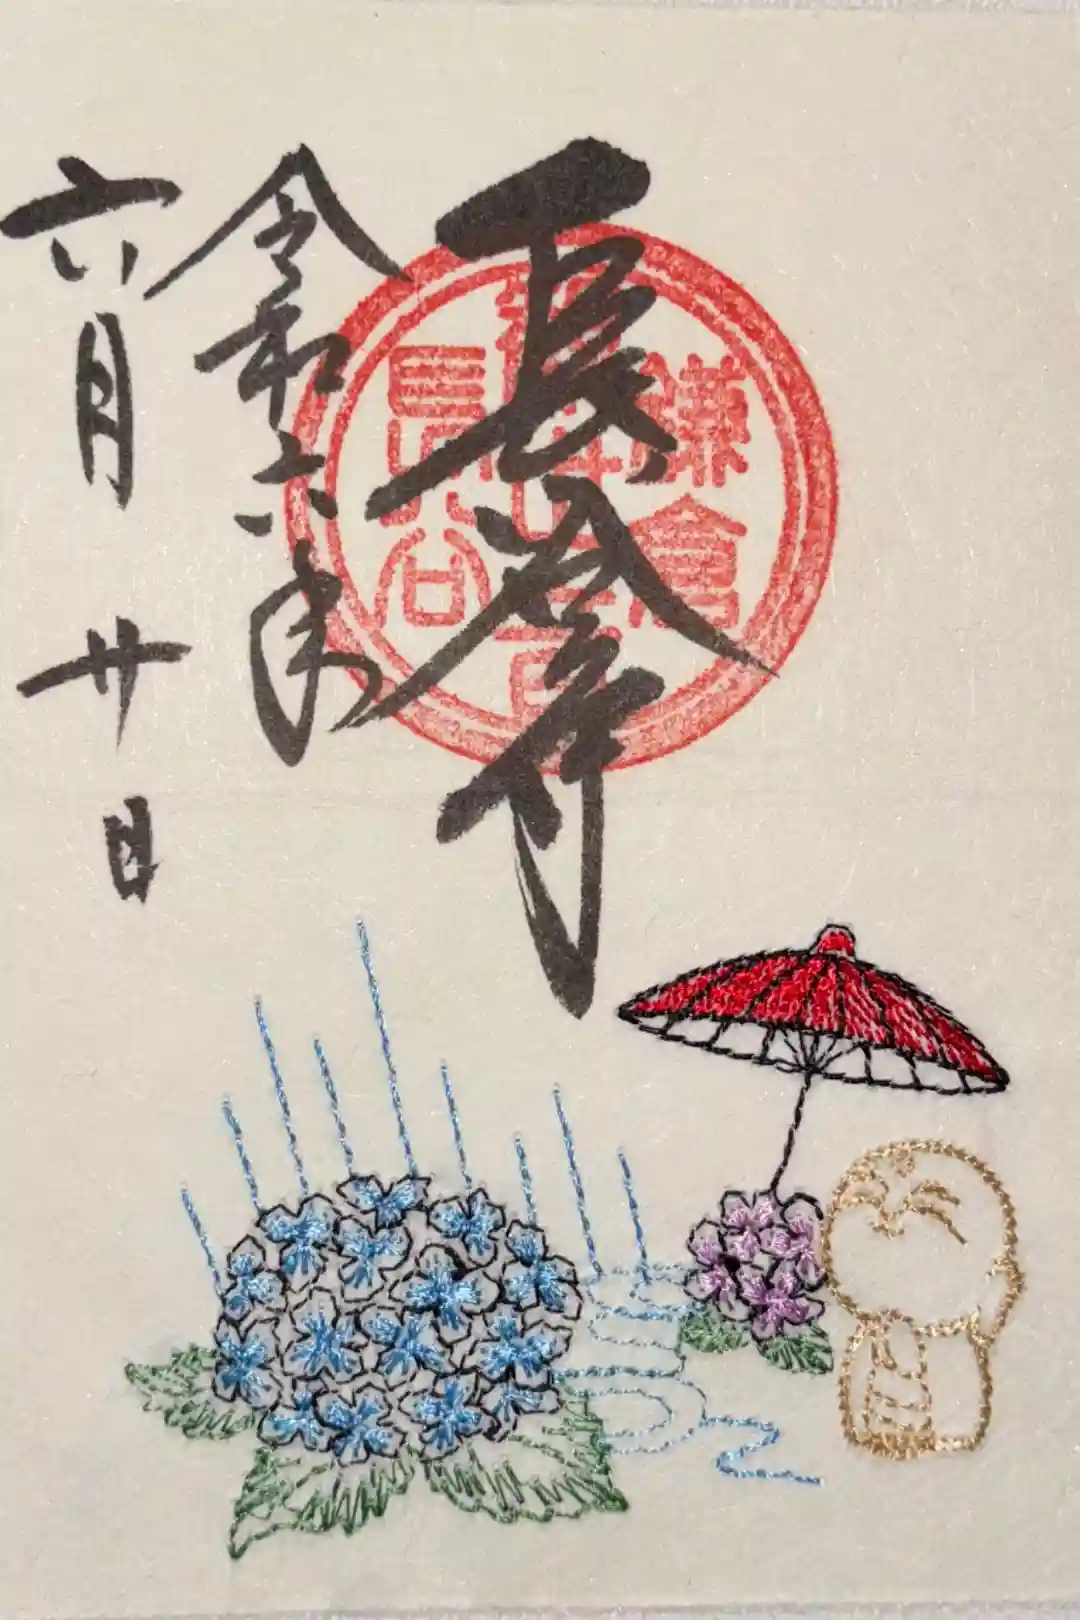 長谷寺
令和六年
六月廿日
鎌倉
長谷